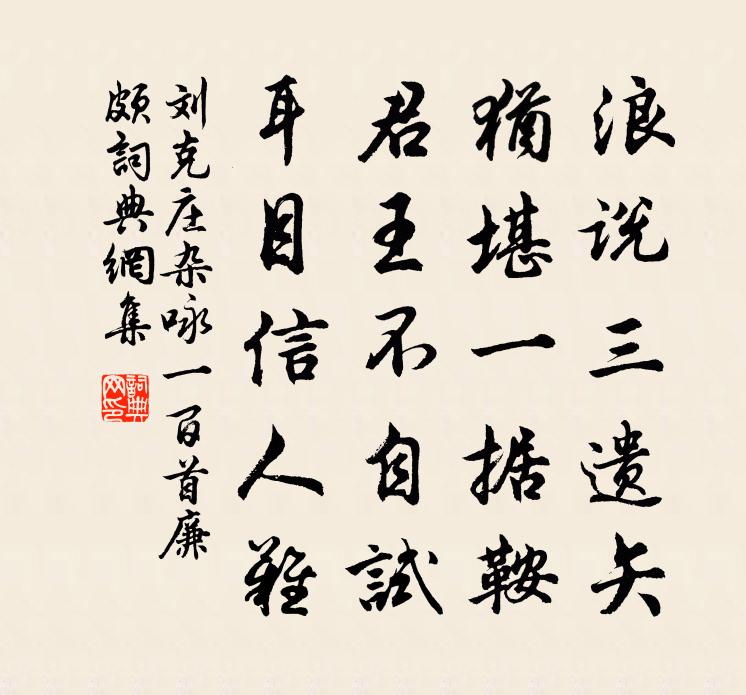 浪说三遗矢
猶堪一据鞍
君王不自試
耳目信人難
刘克庄杂咏一百首廉
頗詞典網集
詞典网印